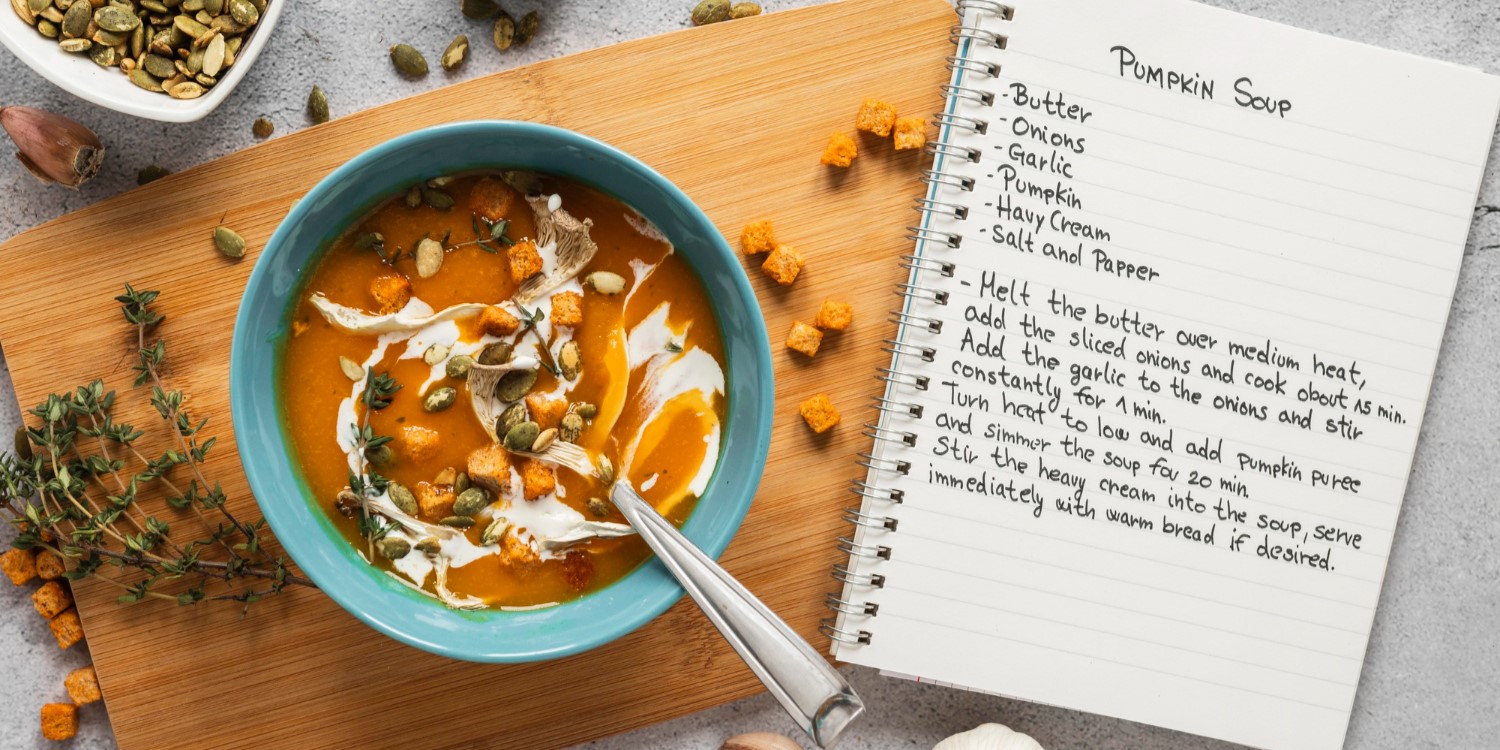 Pumpkin Soup
-Butter
-Onions
-Garlic
-Pumpkin
-Havy Cream
-Salt and Papper
- Melt the butter over medium heat,
add the sliced onions and cook about 15 min.
Add the garlic to the onions and stir
constantly for 1 min.
Turn heat to low and add pumpkin puree
and simmer the soup for 20 min.
Stir the heavy cream into the soup, serve
immediately with warm bread if desired.